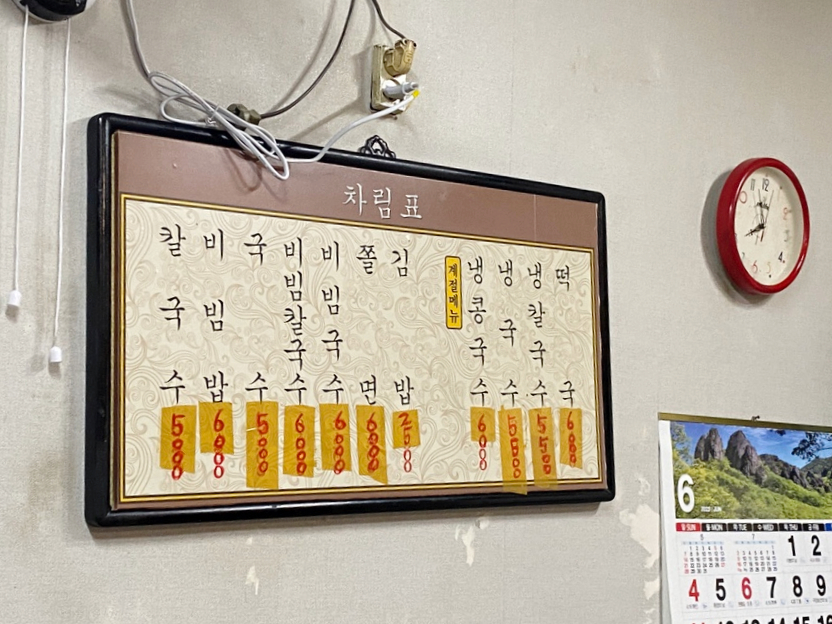 차림표
칼국수 5000
비빔밥 6000
국수 5000
비빔칼국수 6000
비빔국수 6000
쫄면 6000
김밥
계절메뉴
냉콩국수 6000
냉국수 5500
냉칼국수 5500
떡국 6000
12
6
일 SUN 월 MON 화 TUE 수 WED 목 THU 금 FRI
1 2
4 5 6 7 8 9